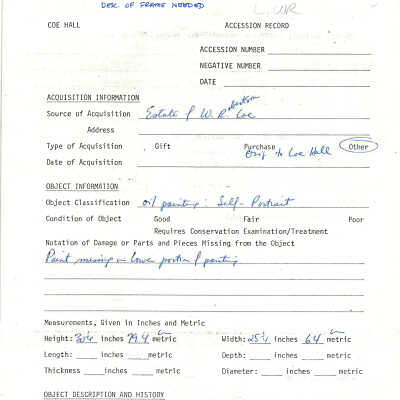 DESC OF FRAME NEEDED
COE HALL
ACCESSION RECORD
ACCESSION NUMBER
NEGATIVE NUMBER
DATE
ACQUISITION INFORMATION
Source of Acquisition Estate of W. R. Coe
Address
Type of Acquisition Gift Purchase Other
Orig. to Coe Hall
Date of Acquisition
OBJECT INFORMATION
Object Classification oil painting: Self-Portrait
Condition of Object Good Fair Poor
Requires Conservation Examination/Treatment
Notation of Damage or Parts and Pieces Missing from the Object
Paint missing in lower portion of painting
Measurements, Given in Inches and Metric
Height: inches 79.4 cm metric Width: 25 1/4 inches 64 cm metric
Length: inches metric Depth: inches metric
Thickness inches metric Diameter: inches metric
OBJECT DESCRIPTION AND HISTORY